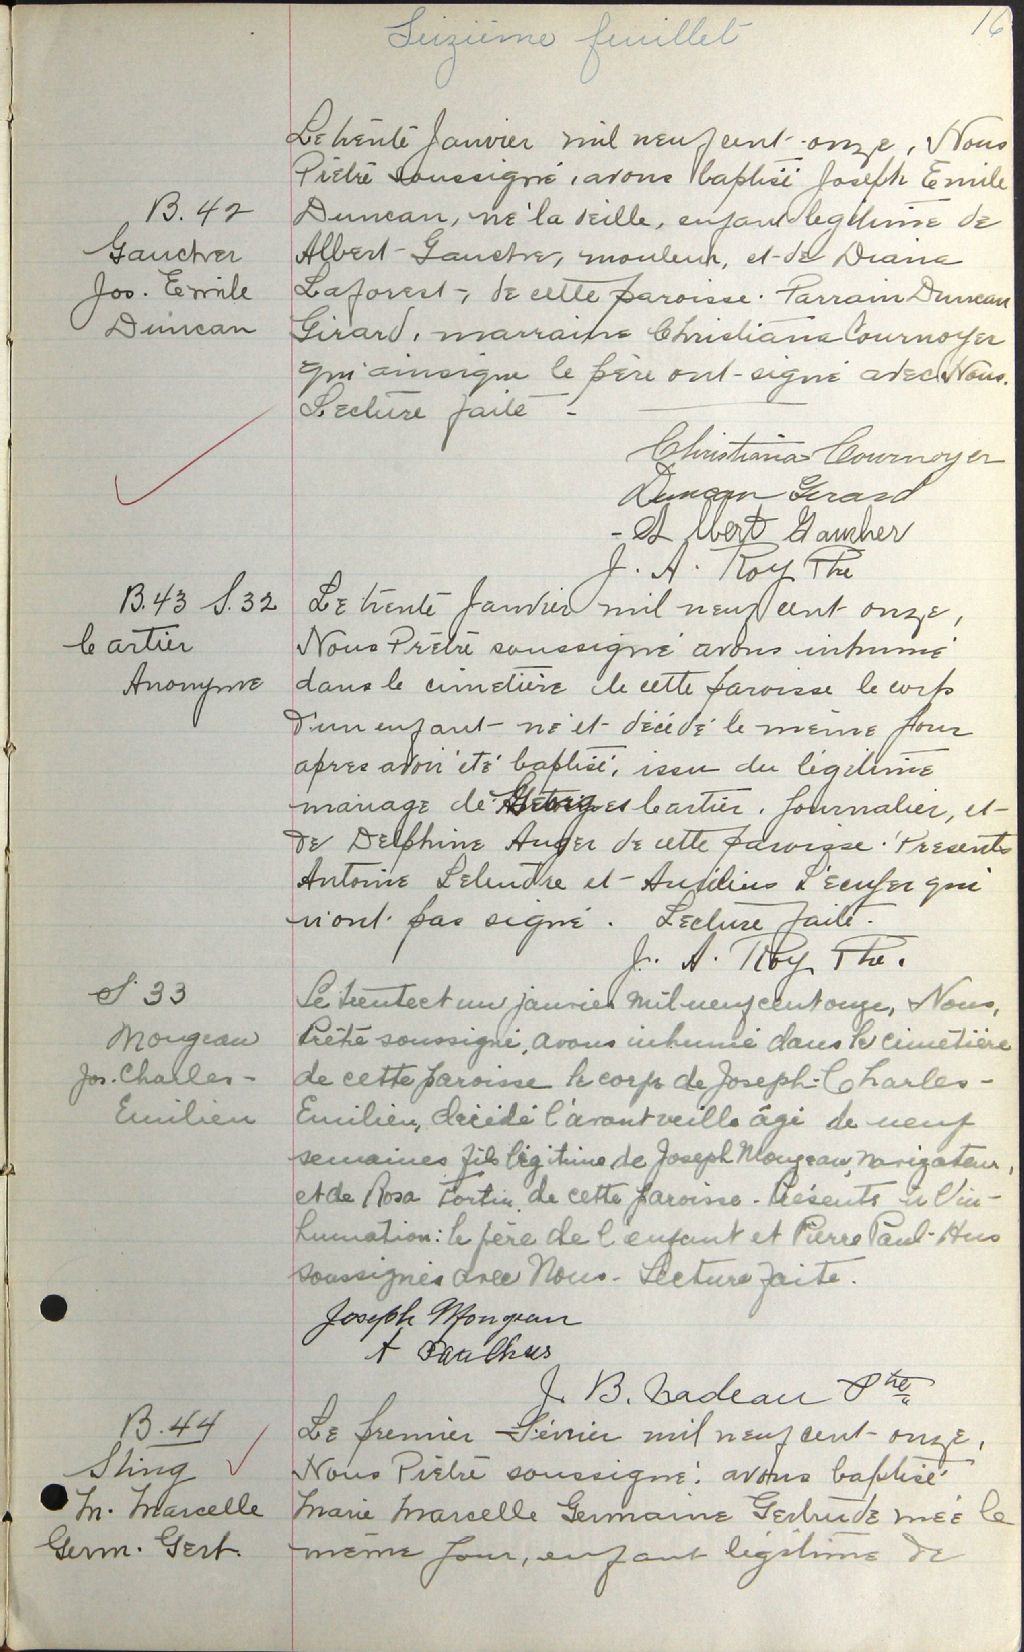 Seizième feuillet
16
Le trente Janvier mil neuf cent onze, Nous
Prêtre soussigné, avons baptisé Joseph Emile
B. 42
Gaucher
Jos. Emile
Duncan
Duncan, né la veille, enfant légitime de
Albert Gaucher, mouleur, et de Diana
Laforest, de cette paroisse. Parrain Duncan
Girard, marraine Christiana Cournoyer
qui ainsi que le père ont signé avec Nous.
Lecture faite -
Christiana Cournoyer
Duncan Girard
Albert Gaucher
J. A. Roy Ptre
B. 43 S. 32
Cartier
Anonyme
Le trente Janvier mil neuf cent onze,
Nous Prêtre soussigné avons inhumé
dans le cimetière de cette paroisse le corps
d'un enfant né et décédé le même jour
après avoir été baptisé, issu du légitime
mariage de Cartier, journalier, et
de Delphine Auger de cette paroisse. Présents
Antoine Letendre et L'écuyer qui
n'ont pas signé. Lecture faite.
J. A. Roy Ptre.
S 33
Mongeau
Jos. Charles-
Emilien
Le trente et un janvier mil neuf cent onze, Nous,
Prêtre soussigné, avons inhumé dans le cimetière
de cette paroisse le corps de Joseph-Charles-
Emilien, décédé l'avant veille âgé de neuf
semaines fils légitime de Joseph Mongeau, navigateur,
et de Rosa Fortin, de cette paroisse. Présents à l'in-
humation: le père de l'enfant et Pierre Paul-Hus
soussignés avec Nous. Lecture faite.
Joseph Mongeau
A Paulhus
J. B. Nadeau Ptre
B. 44
Sting
M. Marcelle
Germ. Gert.
Le premier Février mil neuf cent onze,
Nous Prêtre soussigné, avons baptisé
Marie Marcelle Germaine Gertrude née le
même jour, enfant légitime de